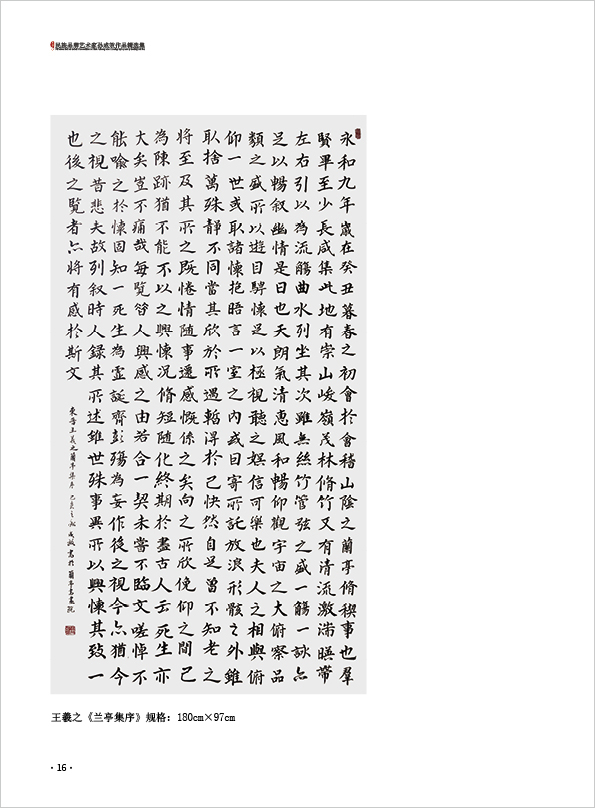 民族品牌艺术家孙成效作品精选集
永和九年歲在癸丑暮春之初會於會稽山陰之蘭亭脩稧事也羣
賢畢至少長咸集此地有崇山峻嶺茂林脩竹又有清流激湍暎帶
左右引以為流觴曲水列坐其次雖無絲竹管弦之盛一觴一詠亦
足以暢叙幽情是日也天朗氣清惠風和暢仰觀宇宙之大俯察品
類之盛所以遊目騁懷足以極視聽之娛信可樂也夫人之相與俯
仰一世或取諸懷抱晤言一室之內或因寄所託放浪形骸之外雖
取捨萬殊靜不同當其欣於所遇暫得於己快然自足曾不知老之
將至及其所之既惓情隨事遷感慨係之矣向之所欣俛仰之間已
為陳跡猶不能不以之興懷況脩短隨化終期於盡古人云死生亦
大矣豈不痛哉每覽昔人興感之由若合一契未嘗不臨文嗟悼不
能喻之於懷固知一死生為虛誕齊彭殤為妄作後之視今亦猶今
之視昔悲夫故列叙時人録其所述雖世殊事異所以興懷其致一
也後之覽者亦將有感於斯文
東晋王羲之蘭亭集序 己亥之秋 書於蘭亭書畫院
王羲之《兰亭集序》规格：180cm×97cm
·16·